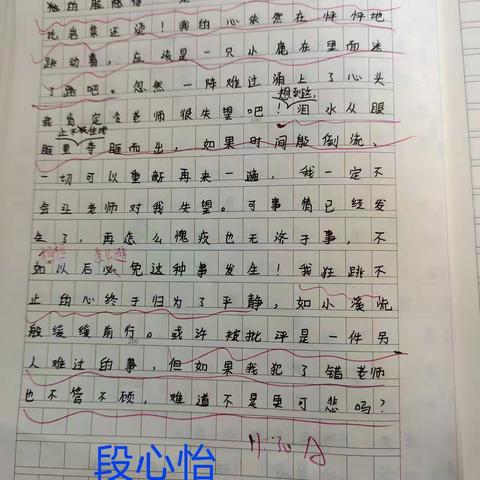 比岩浆还烫！我的心依然在怦怦地
跳动着，应该是一只小鹿在里面迷
了路吧。忽然一阵难过涌上了心头
我肯定令老师很失望吧！想到这，泪水从眼
眶里止不住地夺眶而出，如果时间能倒流，
一切可以重新再来一遍，我一定不
会让老师对我失望。可事情已经发
生了，再怎么愧疚也无济于事，不
如以后必免这种事发生！我狂跳不
止的心终于归为了平静，如小溪流
般缓缓前行。或许被批评是一件另
人难过的事，但如果我犯了错老师
也不管不顾，难道不是更可悲吗？
段心怡